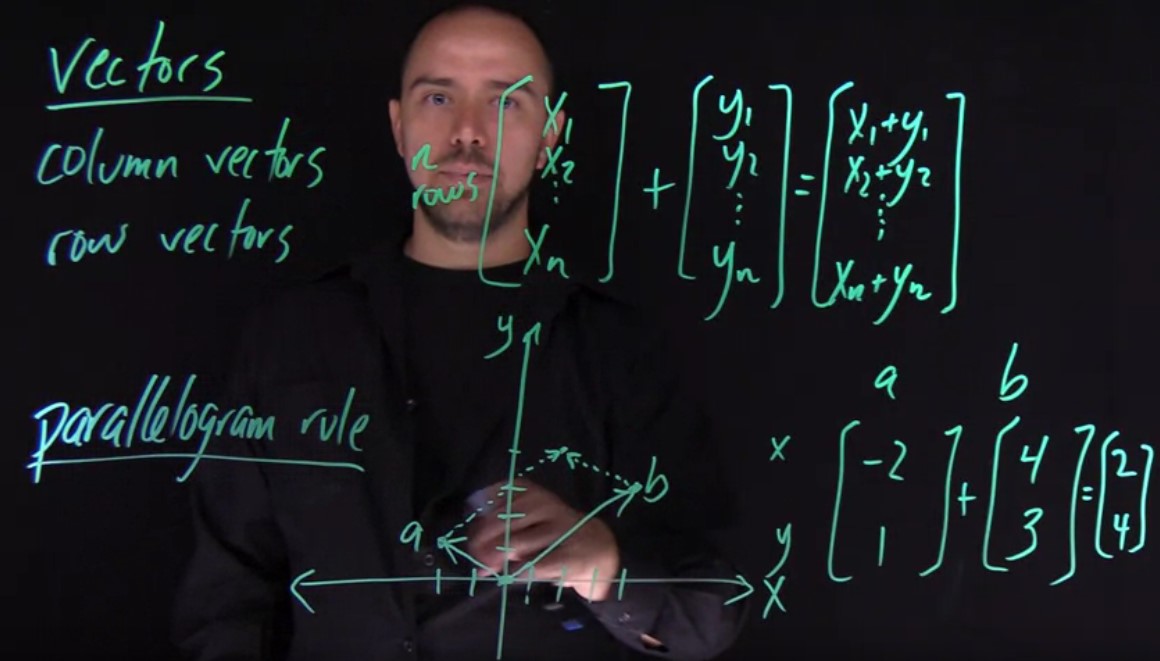 vectors
column vectors
row vectors
n rows [x₁ x₂ ⋮ xₙ] + [y₁ y₂ ⋮ yₙ] = [x₁+y₁ x₂+y₂ ⋮ xₙ+yₙ]
parallelogram rule
y
a
b
x
a b
x [-2 + [4 = [2
y 1] 3] 4]